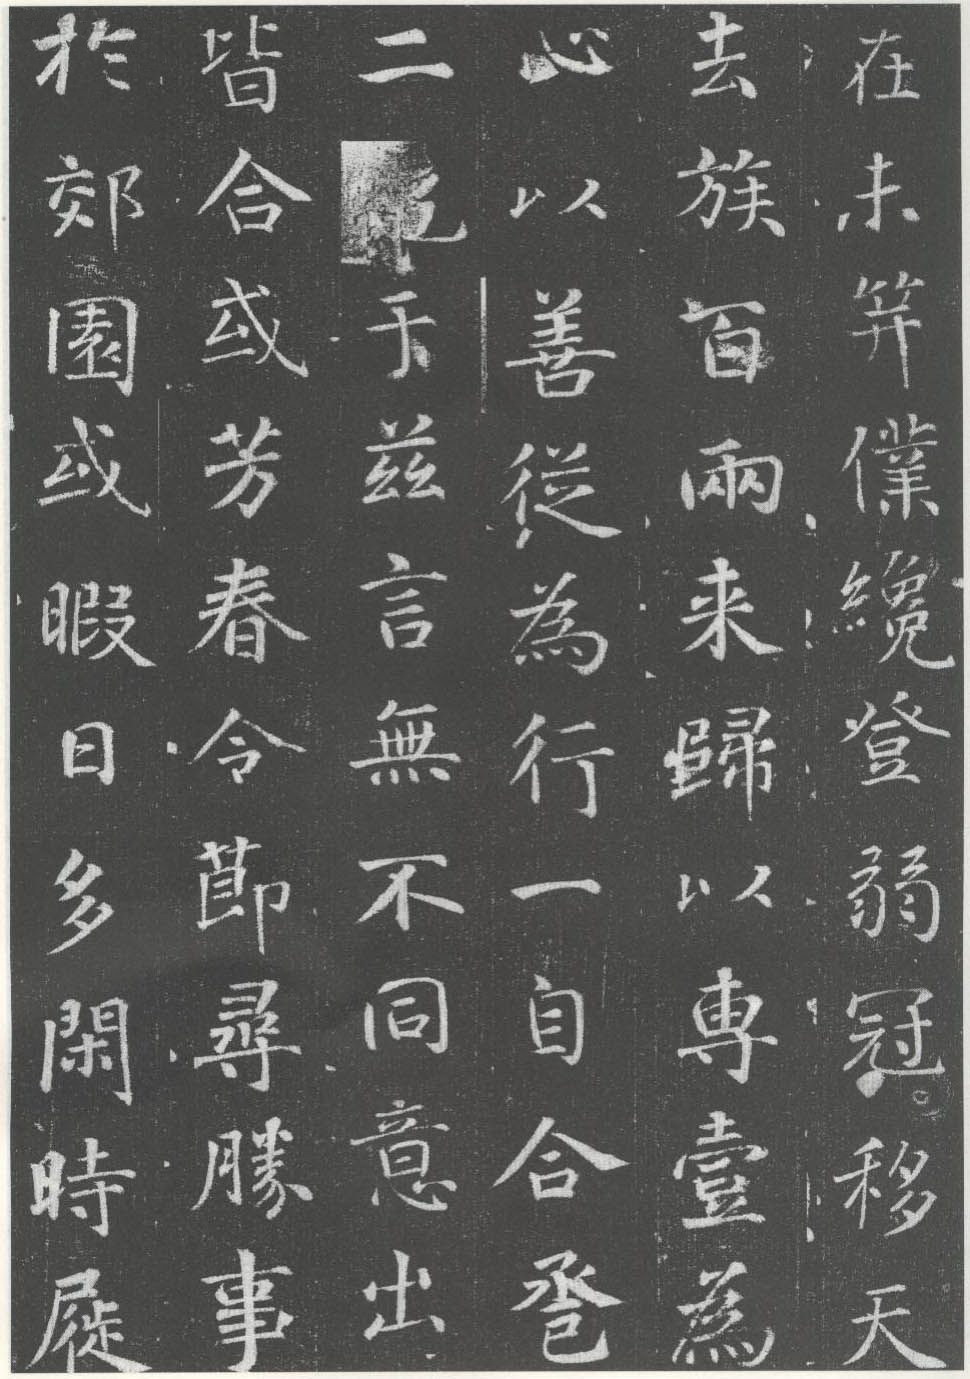 在未笄僕纔登弱冠移天
去族百兩来歸以專壹爲
心以善從為行一自合巹
二于茲言無不同意出
皆合或芳春令節尋勝事
於郊園或暇日多閑時屣